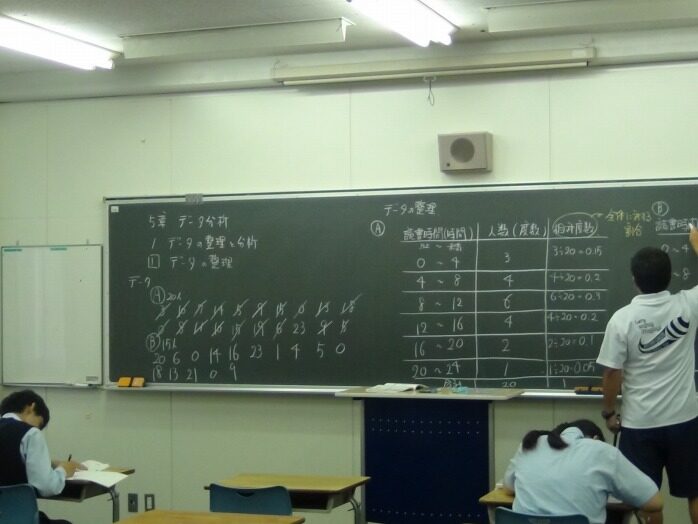 5章 データ分析
1 データの整理と分析
1 データの整理
データ
Ⓐ 20人
Ⓑ 15人
20 6 0 14 16 23 1 4 5 0
18 13 21 0 9
データの整理
Ⓐ
読書時間(時間) 人数(度数) 相対度数
以上 ~ 未満
0 ~ 4 3 3÷20=0.15
4 ~ 8 4 4÷20=0.2
8 ~ 12 6 6÷20=0.3
12 ~ 16 4 4÷20=0.2
16 ~ 20 2 2÷20=0.1
20 ~ 24 1 1÷20=0.05
合計 20 1
全体に対する
割合
Ⓑ
読書時
0 ~ 4
~ 8